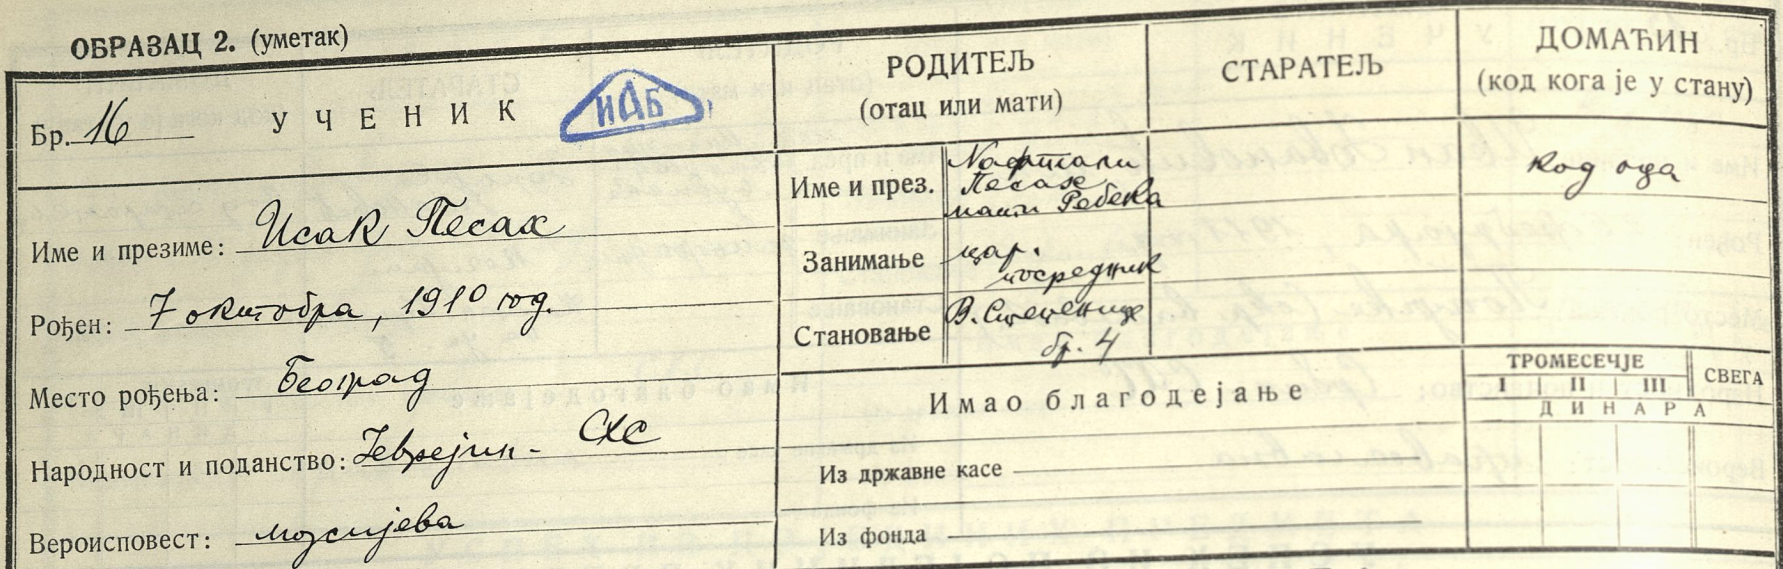 ОБРАЗАЦ 2. (уметак)
Бр. 16 УЧЕНИК ИАБ
Име и презиме: Исак Песах
Рођен: 7 октобра, 1910 год.
Место рођења: Београд
Народност и поданство: Јеврејин - СХС
Вероисповест: мојсијева
РОДИТЕЉ
(отац или мати)
СТАРАТЕЉ
ДОМАЋИН
(код кога је у стану)
Име и през. Нафтали
Песах
мати Ребека
код оца
Занимање цар.
посредник
Становање В. Степенице
бр. 4
Имао благодејање
ТРОМЕСЕЧЈЕ
I II III СВЕГА
ДИНАРА
Из државне касе
Из фонда